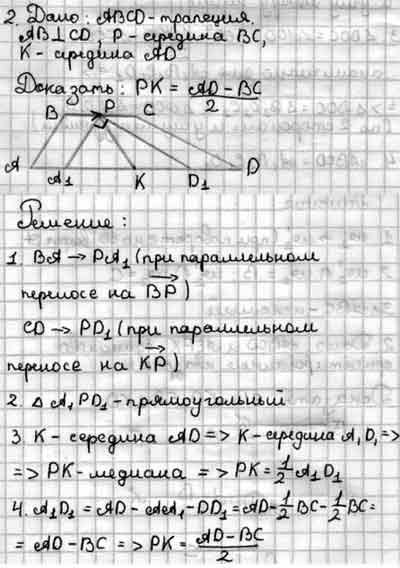 2. Дано: ABCD - трапеция.
AB⊥CD, P - середина BC,
K - середина AD
Доказать: PK = (AD - BC)/2
B P C
A A₁ K D₁ D
Решение:
1. BA → PA₁ (при параллельном
переносе на BP)
CD → PD₁ (при параллельном
переносе на KP)
2. Δ A₁PD₁ - прямоугольный
3. K - середина AD => K - середина A₁D₁ =>
=> PK - медиана => PK = 1/2 A₁D₁
4. A₁D₁ = AD - AA₁ - DD₁ = AD - 1/2 BC - 1/2 BC =
= AD - BC => PK = (AD - BC)/2